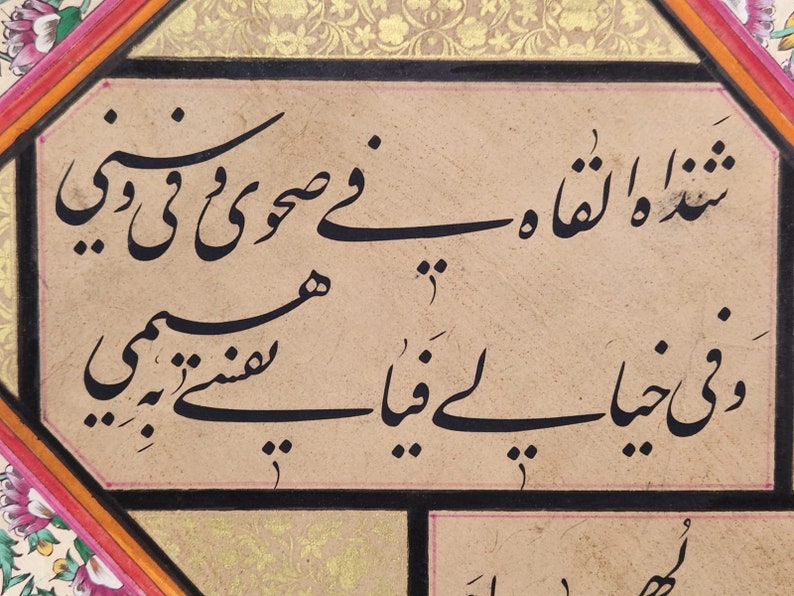 شَذاه القاه في صحوى و فى وسني
وَفى خيالي فَيا نفسي بِهِ هيمي